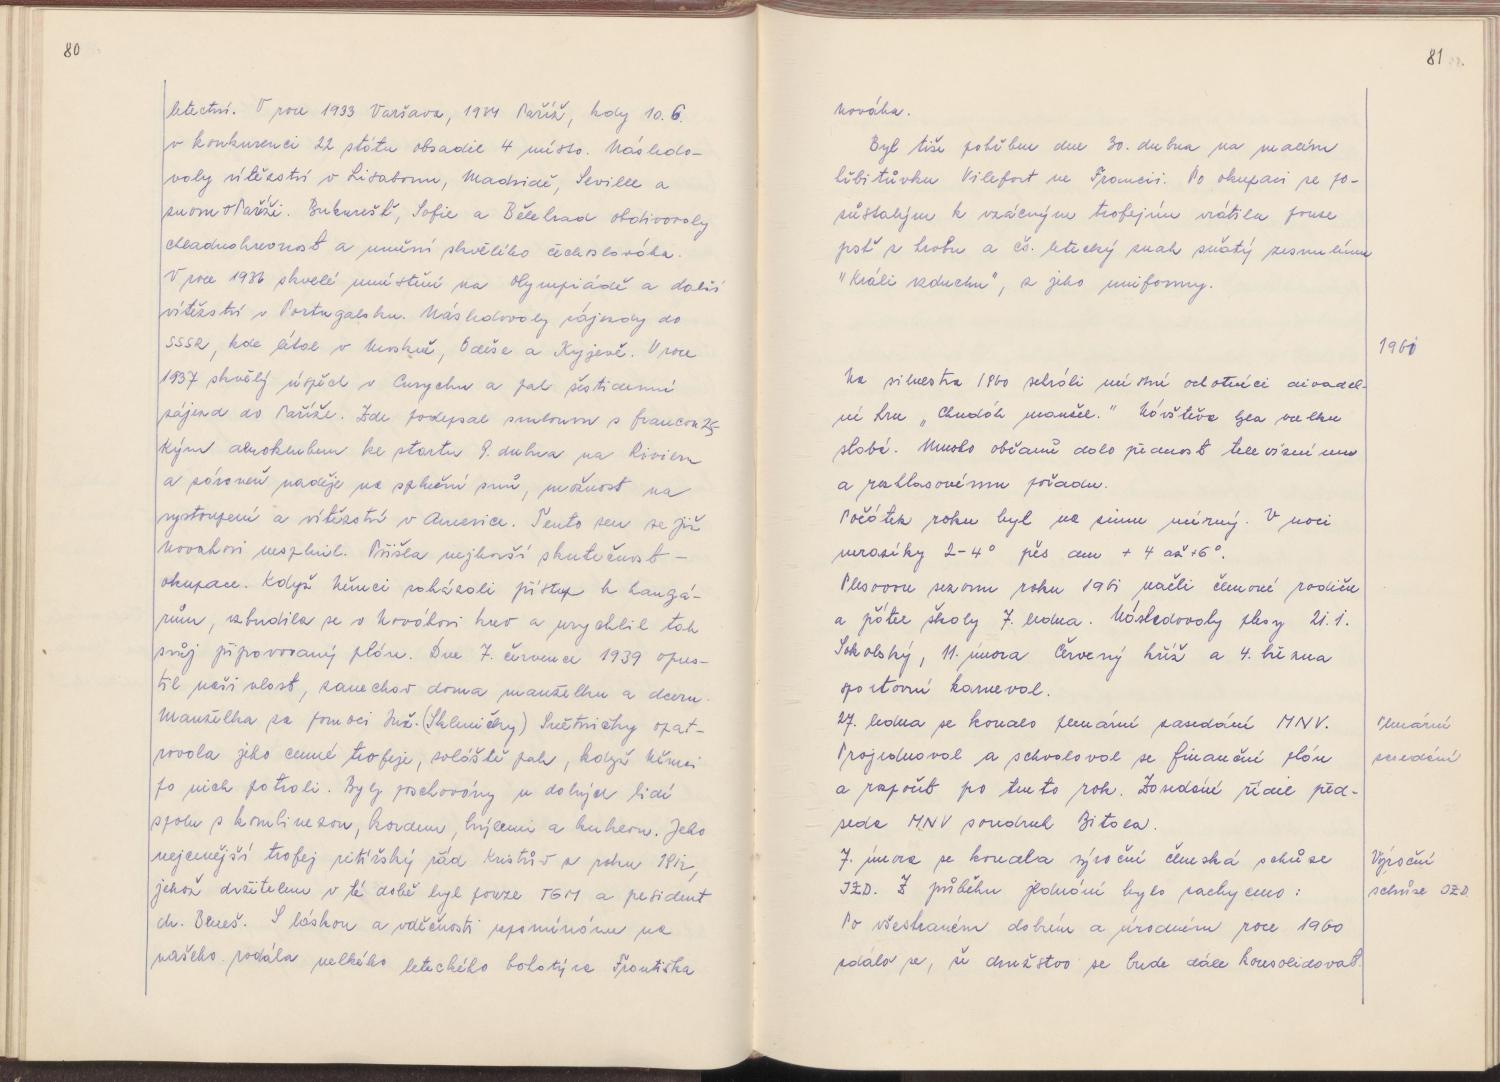 80
letectví. V roce 1933 Varšava, 1934 Paříž, kdy 10. 6.
v konkurenci 22 státu obsadil 4 místo. Následo-
valy vítězství v Lisabonu, Madridě, Seville a
znovu v Paříži. Bukurešť, Sofie a Bělehrad obdivovaly
chladnokrevnost a umění skvělého čechoslováka.
V roce 1936 skvělé umístění na Olympiádě a další
vítězství v Portugalsku. Následovaly zájezdy do
SSSR, kde létal v Moskvě, Oděse a Kyjevě. V roce
1937 skvělý úspěch v Curychu a pak šestidenní
zájezd do Paříže. Zde podepsal smlouvu s francouzs-
kým aeroklubem ke startu 9. dubna na Rivieru
a zároveň naděje na splnění snů, možnost na
vystoupení a vítězství v Americe. Tento sen se již
Novákovi nesplnil. Přišla nejhorší skutečnost –
okupace. Když Němci zakázali přístup k hangá-
rům, vzbudila se v Novákovi krev a urychlil tak
svůj připravovaný plán. Dne 7. července 1939 opus-
til naši vlast, zanechav doma manželku a dceru.
Manželka za pomoci Inž. (Skleničky) Smětničky opat-
rovala jeho cenné trofeje, zvláště pak, když Němci
po nich pátrali. Byly poschovány u dobrých lidí
spolu s kombinezou, kordem, brýlemi a kuklou. Jeho
nejcennější trofej rytířský řád Kristův z roku 1812,
jehož držitelem v té době byl pouze TGM a president
dr. Beneš. S láskou a vděčností vzpomínáme na
našeho rodáka velkého leteckého bohatýra Františka
81
Nováka.
Byl tiše pohřben dne 30. dubna na malém
hřbitůvku Vilefort ve Francii. Po okupaci se po-
zůstalým k vzácným trofejím vrátila pouze
prsť z hrobu a čs. letecký znak sňatý zesnulému
"Králi vzduchu", z jeho uniformy.
1961
Na silvestra 1960 sehráli místní ochotníci divadel-
ní hru „Chudák manžel." Návštěva byla velku
slabá. Mnoho občanů dalo přednost televiznímu
a rozhlasovému pořadu.
Počátek roku byl na zimu mírný. V noci
mrazíky 2–4° přes den + 4 až +6°.
Plesovou sezonu roku 1961 načli členové rodičů
a přátel školy 7. ledna. Následovaly plesy 21. 1.
Sokolský, 11. února Červený kříž a 4. března
sportovní karneval.
27. ledna se konalo plenární zasedání MNV.
Plenární
zasedání
Projednoval a schvaloval se finanční plán
a rozpočet po tento rok. Zasedání řídil před-
seda MNV soudruh Bitala.
7. února se konala výroční členská schůze
Výroční
schůze JZD.
JZD. Z průběhu jednání bylo zachyceno:
Po všestranném dobrém a úrodném roce 1960
zdálo se, že družstvo se bude dále konsolidovat.